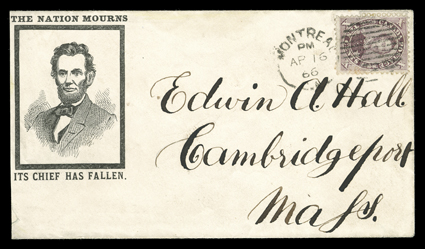 THE NATION MOURNS
ITS CHIEF HAS FALLEN.
MONTREAL
PM
AP 16
66
Edwin A. Hall
Cambridgeport
Mass.